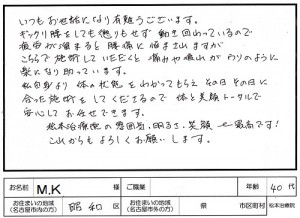 いつもお世話になり有難うございます。
ギックリ腰をしても懲りもせず 動き回わっているので
疲労が溜まると腰痛に悩まされますが
こちらで施術していただくと 痛みや疲れが ウソのように
楽になり助っています。
私自身より 体の状態を わかってもらえ その日 その日に
合った施術をしてくださるので 体と笑顔トータルで
安心しておまかせできます。
松本治療院の雰囲気、明るさ、笑顔 最高です!
これからもよろしくお願いします。
お名前 M.K 様 ご職業 年齢 40代
お住まいの地域
(名古屋市内の方) 昭和 区 お住まいの地域
(名古屋市外の方) 県 市区町村 松本治療院